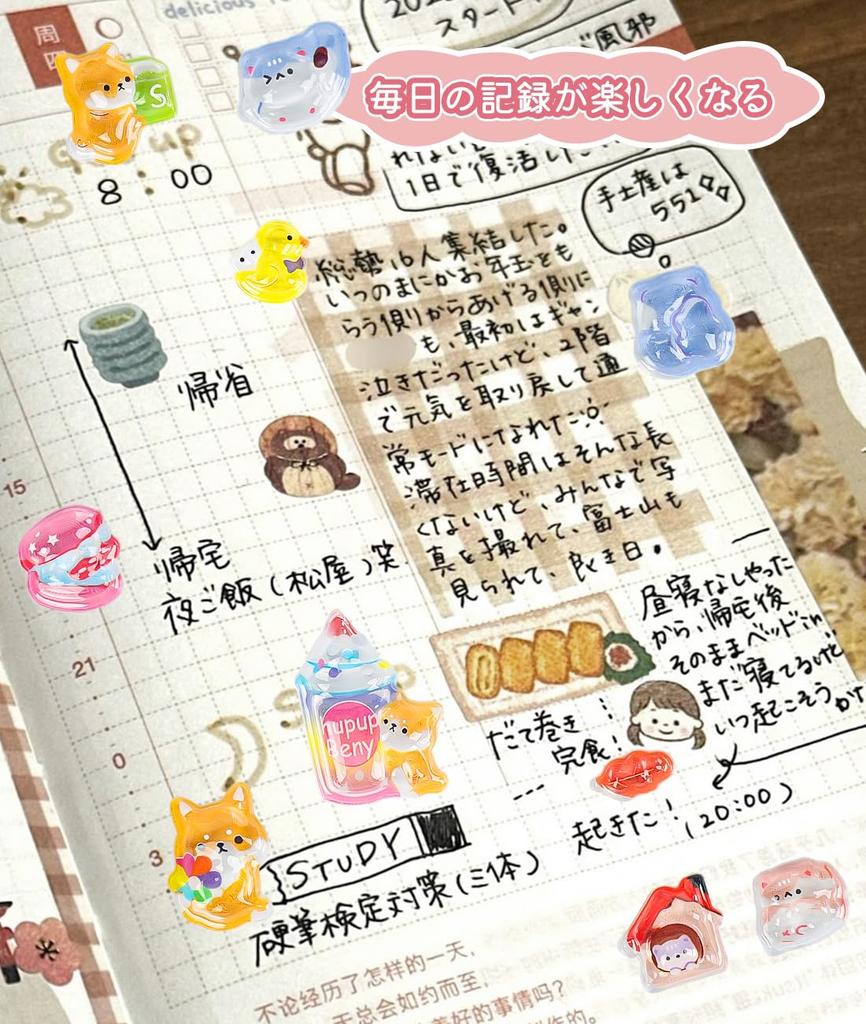 周
四
delicious
スタート
風邪
毎日の記録が楽しくなる
1日で復活した
手土産は
551
8:00
総勢16人集結した。
いつのまにかお年玉をも
らう側からあげる側に
も、最初はギャン
泣きだったけど、2階
で元気を取り戻して通
常モードになれた
滞在時間はそんな長
くないけど、みんなで写
真を撮れて、富士山も
見られて、良き日。
帰省
15
帰宅
夜ご飯(松屋)笑
21
0
3
昼寝なしやった
から、帰宅後
そのままベッドin
まだ寝てるけど
いつ起こそうか
だて巻き
完食!
起きた!
(20:00)
S
hupup
Beny
STUDY
硬筆検定対策(三体)
不论经历了怎样的一天,
天总会如约而至,
美好的事情吗?